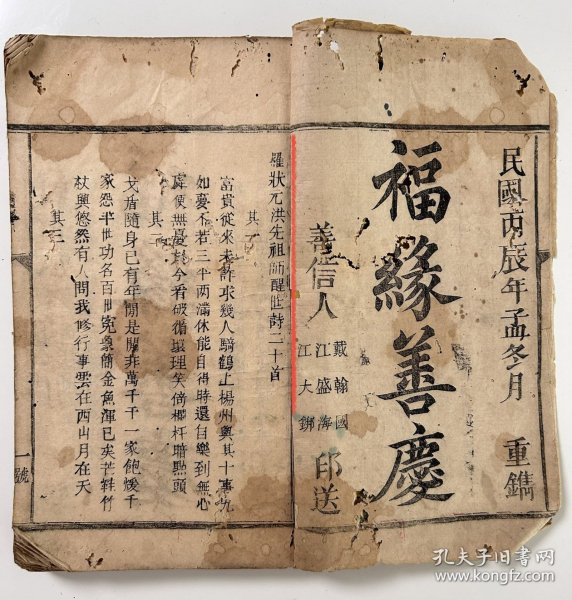 民國丙辰年孟冬月 重鐫
福緣善慶
義信人
戴翰國
江盛海
江大
印送
羅狀元洪先祖師醒世詩二十首
其一
富貴從來未許求幾人騎鶴上楊州與其十事九
如夢不若三平两滿休能自得時還自樂到無心
處便無憂於今看破循環理笑倚欄杆暗點頭
其二
戈盾隨身已有年閒是閒非萬千千一家飽煖千
家怨半世功名百世冤象簡金魚渾已矣芒鞋竹
杖興悠然有人問我修行事雲在西山月在天
其三
一號
孔夫子旧书网
www.kongfz.com